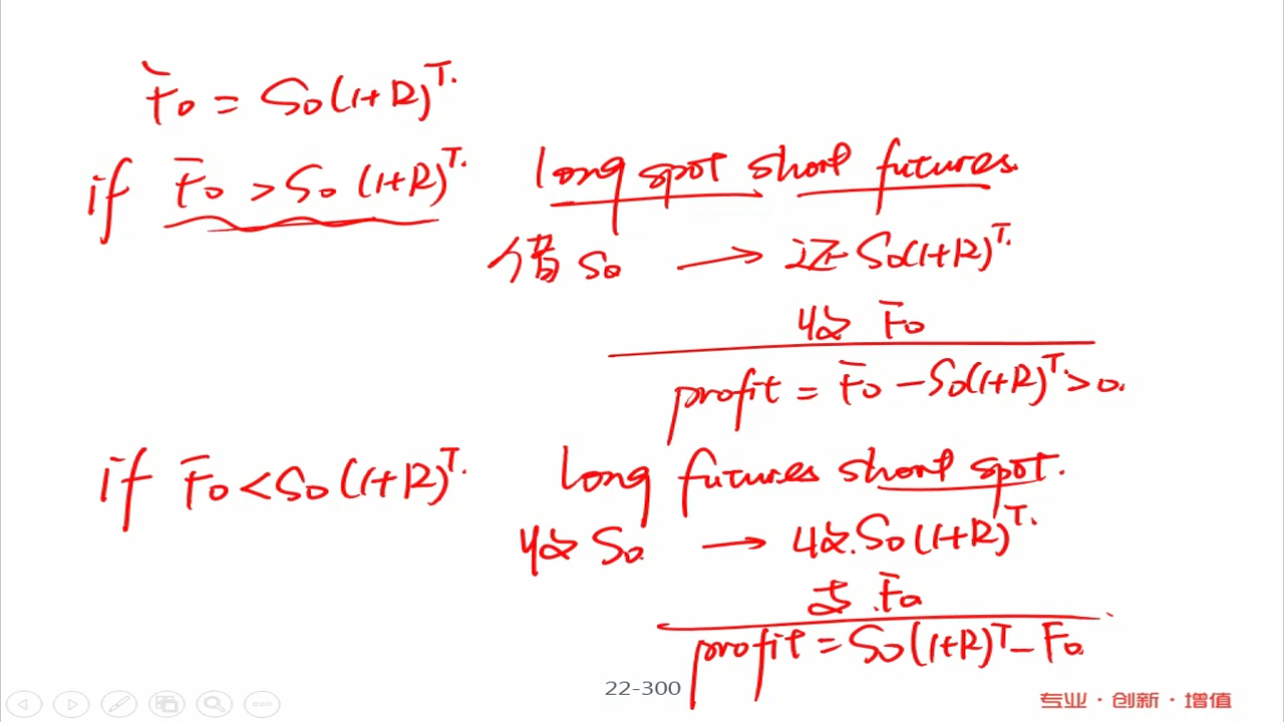 F₀ = S₀(1+R)ᵀ.
if F₀ > S₀(1+R)ᵀ. long spot short futures.
借 S₀ → 还 S₀(1+R)ᵀ.
收 F₀
profit = F₀ - S₀(1+R)ᵀ > 0.
if F₀ < S₀(1+R)ᵀ. long futures short spot.
收 S₀. → 收. S₀(1+R)ᵀ.
F₀
profit = S₀(1+R)ᵀ - F₀.
22-300
专业·创新·增值